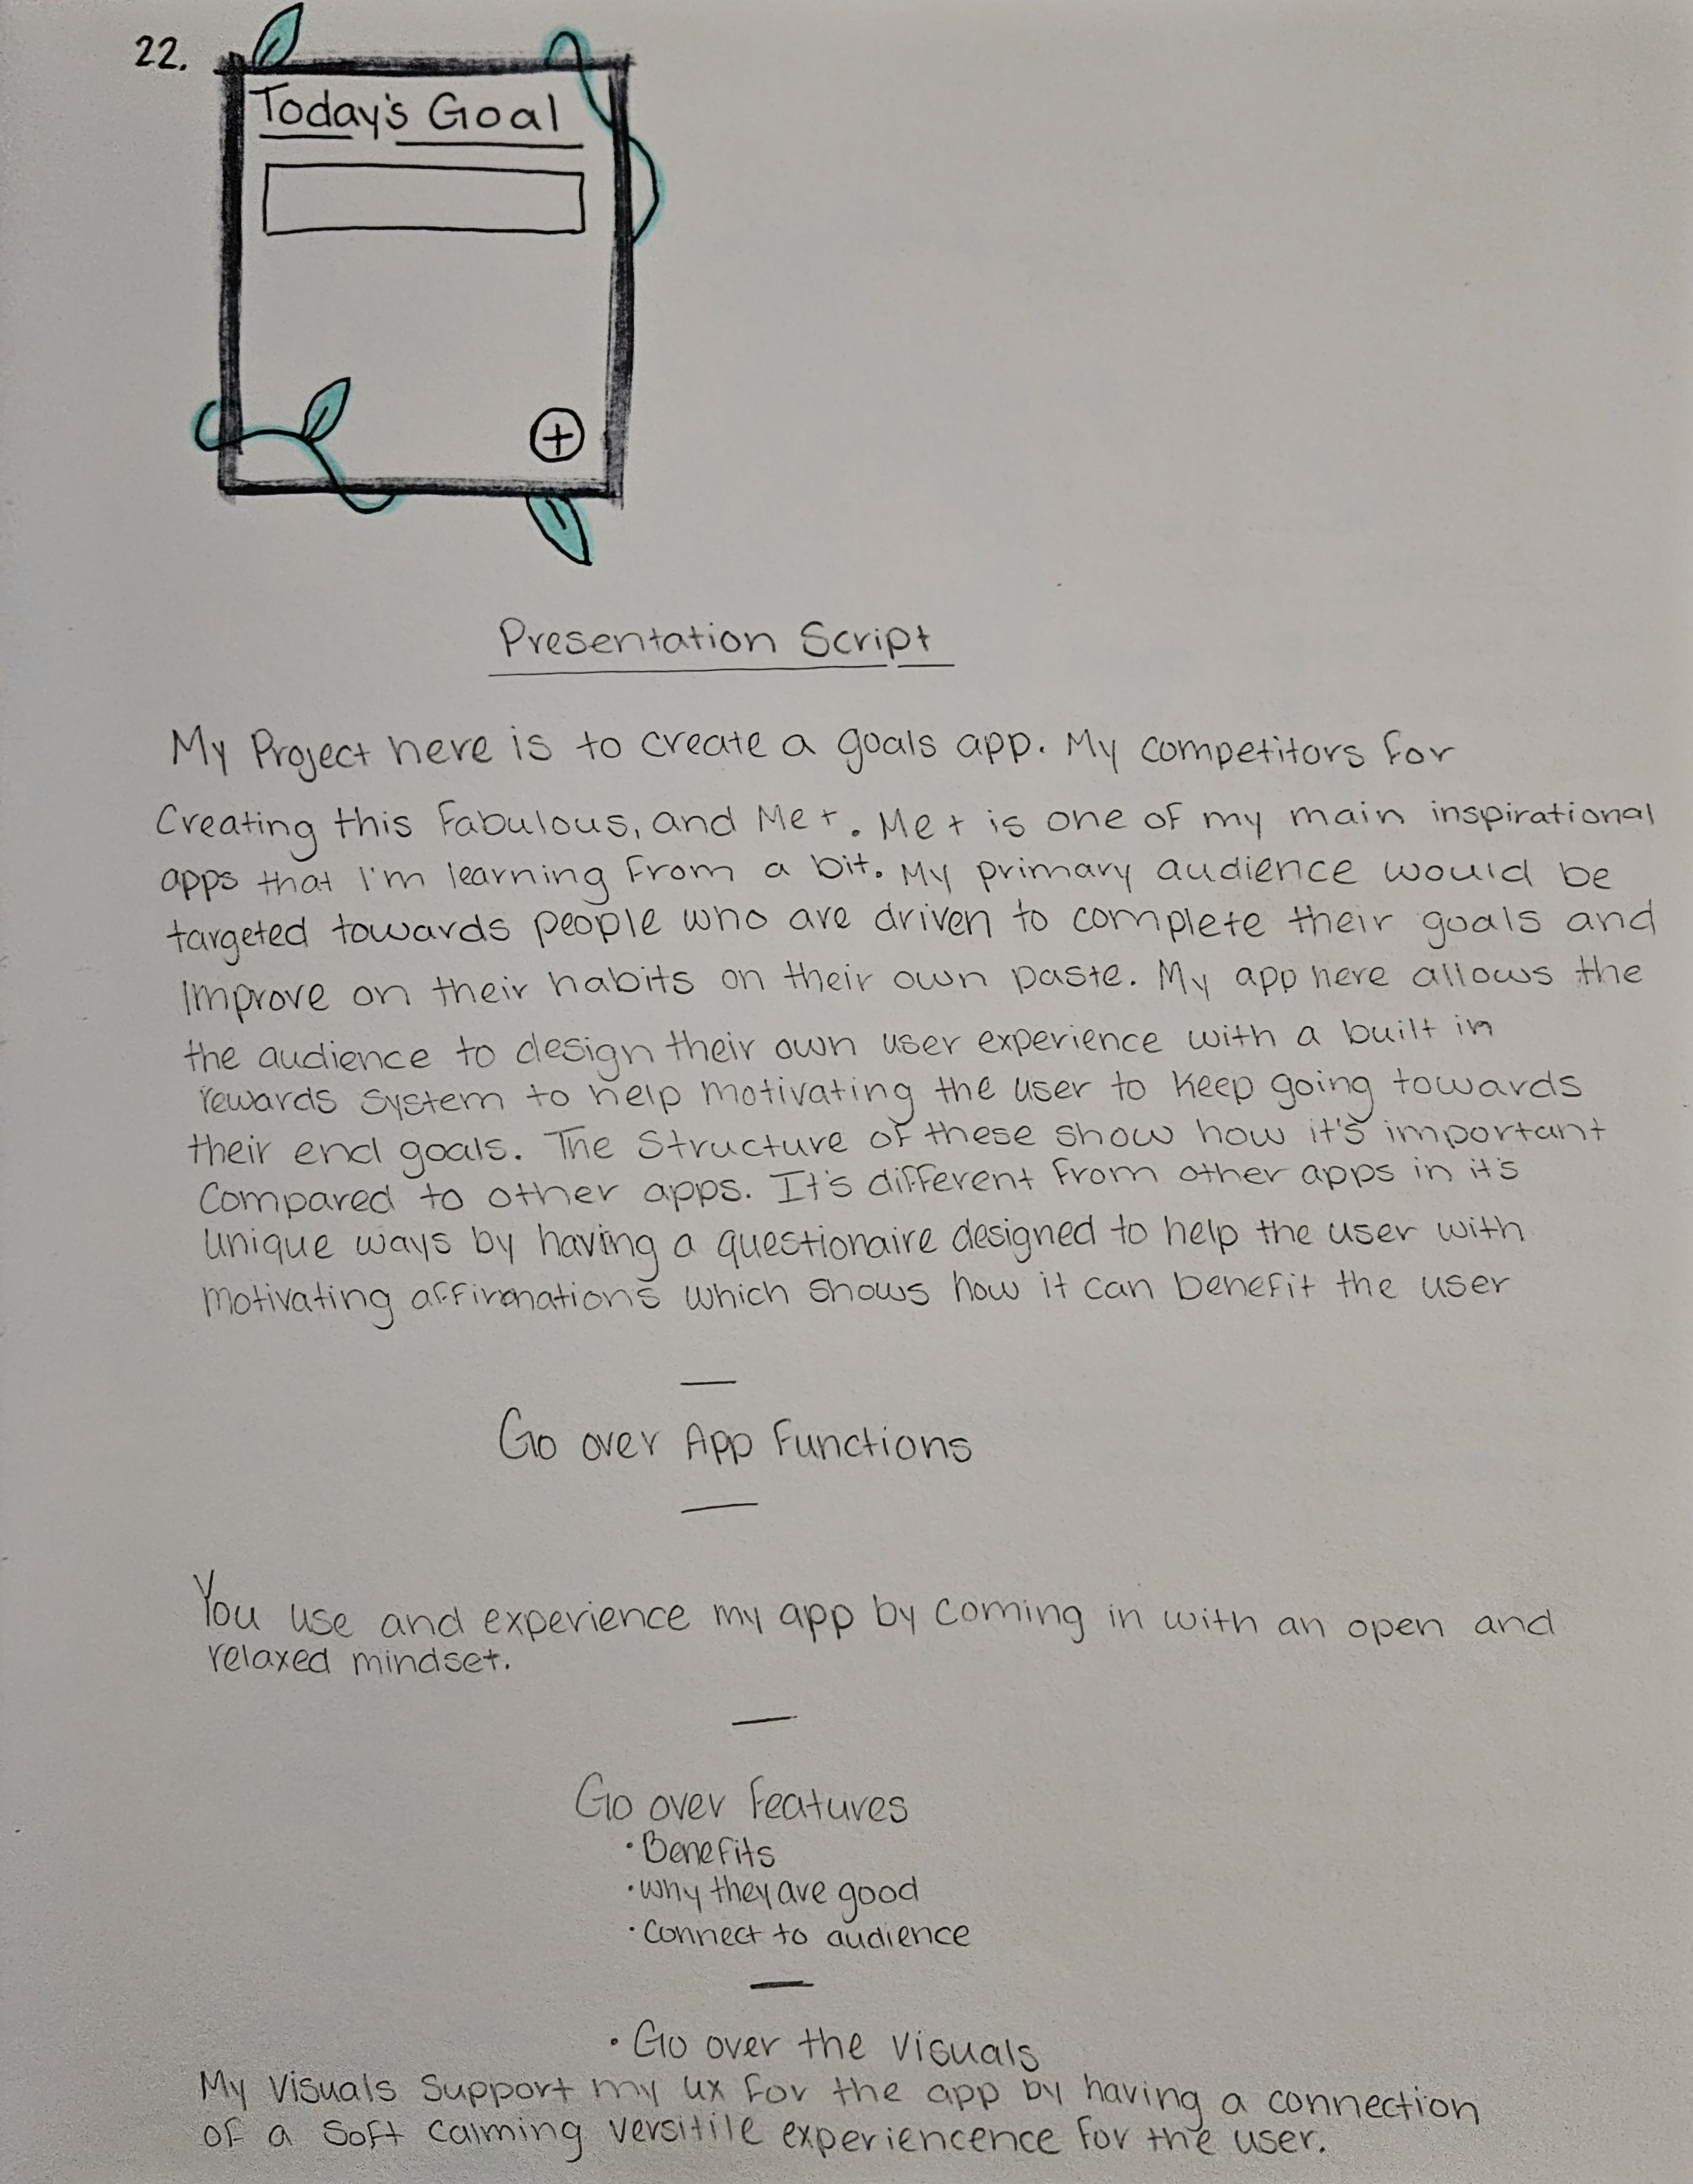 22.
Today's Goal
+
Presentation Script
My Project here is to create a goals app. My competitors for
Creating this Fabulous, and Me+. Me+ is one of my main inspirational
apps that I'm learning from a bit. My primary audience would be
targeted towards people who are driven to complete their goals and
Improve on their habits on their own paste. My app here allows the
the audience to design their own user experience with a built in
rewards system to help motivating the user to keep going towards
their end goals. The Structure of these show how it's important
Compared to other apps. It's different from other apps in it's
Unique ways by having a questionaire designed to help the user with
motivating affirmations which shows how it can benefit the user
—
Go over App Functions
—
You use and experience my app by coming in with an open and
relaxed mindset.
—
Go over Features
• Benefits
• why they are good
• Connect to audience
—
• Go over the visuals
My visuals support my ux for the app by having a connection
of a soft calming versitile experiencence for the user.